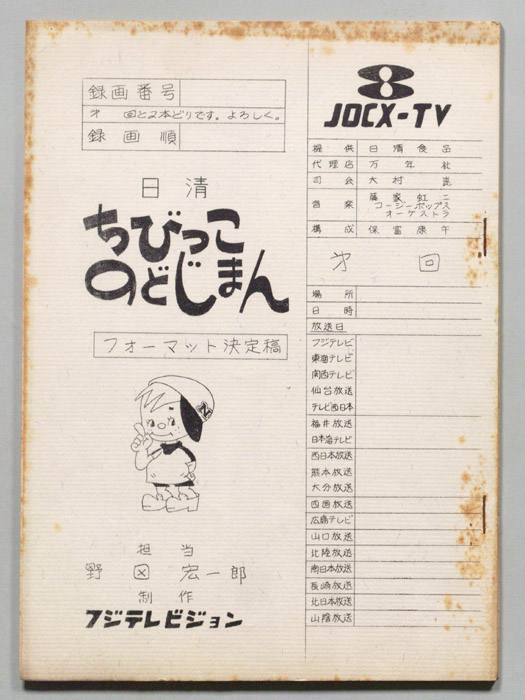 録画番号
才 回と2本どりです。よろしく。
録画順
日清
ちびっこ
のどじまん
フォーマット決定稿
N
担当
野田宏一郎
制作
フジテレビジョン
8
JOCX-TV
提供 日清食品
代理店 万年社
司会 大村崑
音楽 藤家虹二
コージーポップス
オーケストラ
構成 保富康午
才 回
場所
日時
放送日
フジテレビ
東海テレビ
関西テレビ
仙台放送
テレビ西日本
福井放送
日本海テレビ
西日本放送
熊本放送
大分放送
四国放送
広島テレビ
山口放送
北陸放送
南日本放送
長崎放送
北日本放送
山陰放送